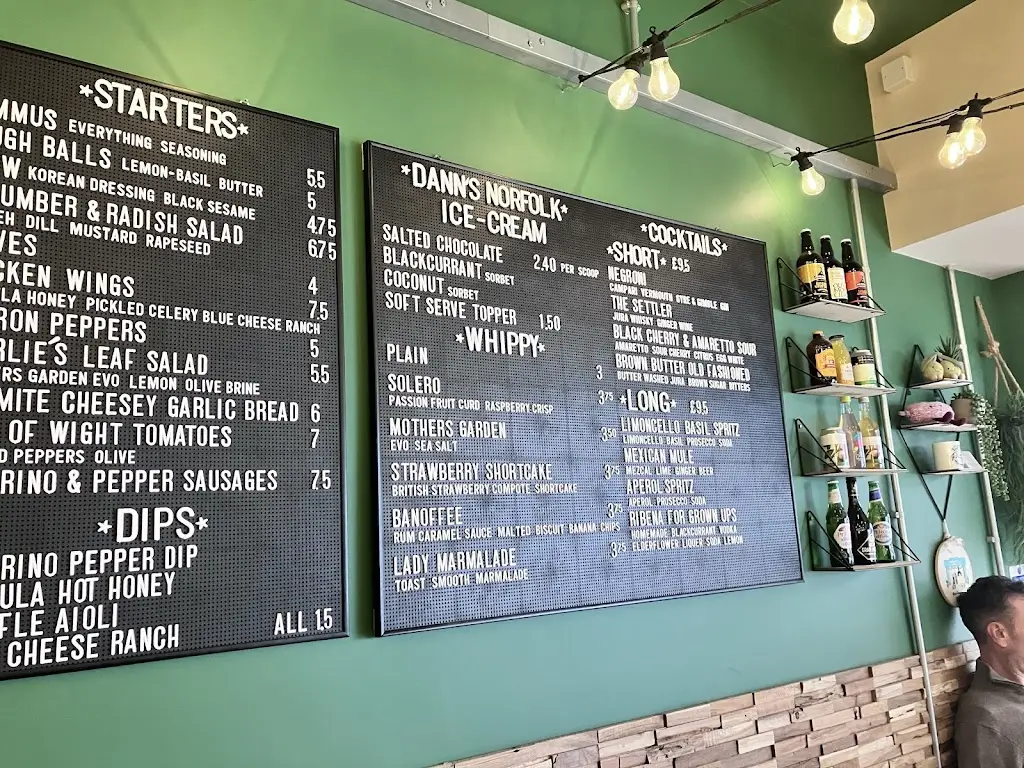 *STARTERS*
MMUS EVERYTHING SEASONING 5.5
UGH BALLS LEMON-BASIL BUTTER 5
W KOREAN DRESSING BLACK SESAME 4.75
UMBER & RADISH SALAD 6.75
EH DILL MUSTARD RAPESEED
VES 4
CKEN WINGS 7.5
LA HONEY PICKLED CELERY BLUE CHEESE RANCH
RON PEPPERS 5
RLIE'S LEAF SALAD 5.5
ERS GARDEN EVO LEMON OLIVE BRINE
MITE CHEESEY GARLIC BREAD 6
OF WIGHT TOMATOES 7
D PEPPERS OLIVE
RINO & PEPPER SAUSAGES 7.5
*DIPS*
RINO PEPPER DIP
ULA HOT HONEY
FLE AIOLI
CHEESE RANCH ALL 1.5
*DANN'S NORFOLK*
ICE-CREAM
SALTED CHOCOLATE 2.40 PER SCOOP
BLACKCURRANT SORBET
COCONUT SORBET
SOFT SERVE TOPPER 1.50
*WHIPPY*
PLAIN 3
SOLERO 3.75
PASSION FRUIT CURD RASPBERRY CRISP
MOTHERS GARDEN 3.50
EVO SEA SALT
STRAWBERRY SHORTCAKE 3.75
BRITISH STRAWBERRY COMPOTE SHORTCAKE
BANOFFEE 3.75
RUM CARAMEL SAUCE MALTED BISCUIT BANANA CHIPS
LADY MARMALADE 3.75
TOAST SMOOTH MARMALADE
*COCKTAILS*
*SHORT* £9.5
NEGRONI
CAMPARI VERMOUTH GYRE & GIMBLE GIN
THE SETTLER
JURA WHISKY GINGER WINE
BLACK CHERRY & AMARETTO SOUR
AMARETTO SOUR CHERRY CITRUS EGG WHITE
BROWN BUTTER OLD FASHIONED
BUTTER WASHED JURA BROWN SUGAR BITTERS
*LONG* £9.5
LIMONCELLO BASIL SPRITZ
LIMONCELLO BASIL PROSECCO SODA
MEXICAN MULE
MEZCAL LIME GINGER BEER
APEROL SPRITZ
APEROL PROSECCO SODA
RIBENA FOR GROWN UPS
HOMEMADE BLACKCURRANT VODKA
ELDERFLOWER LIQUER SODA LEMON